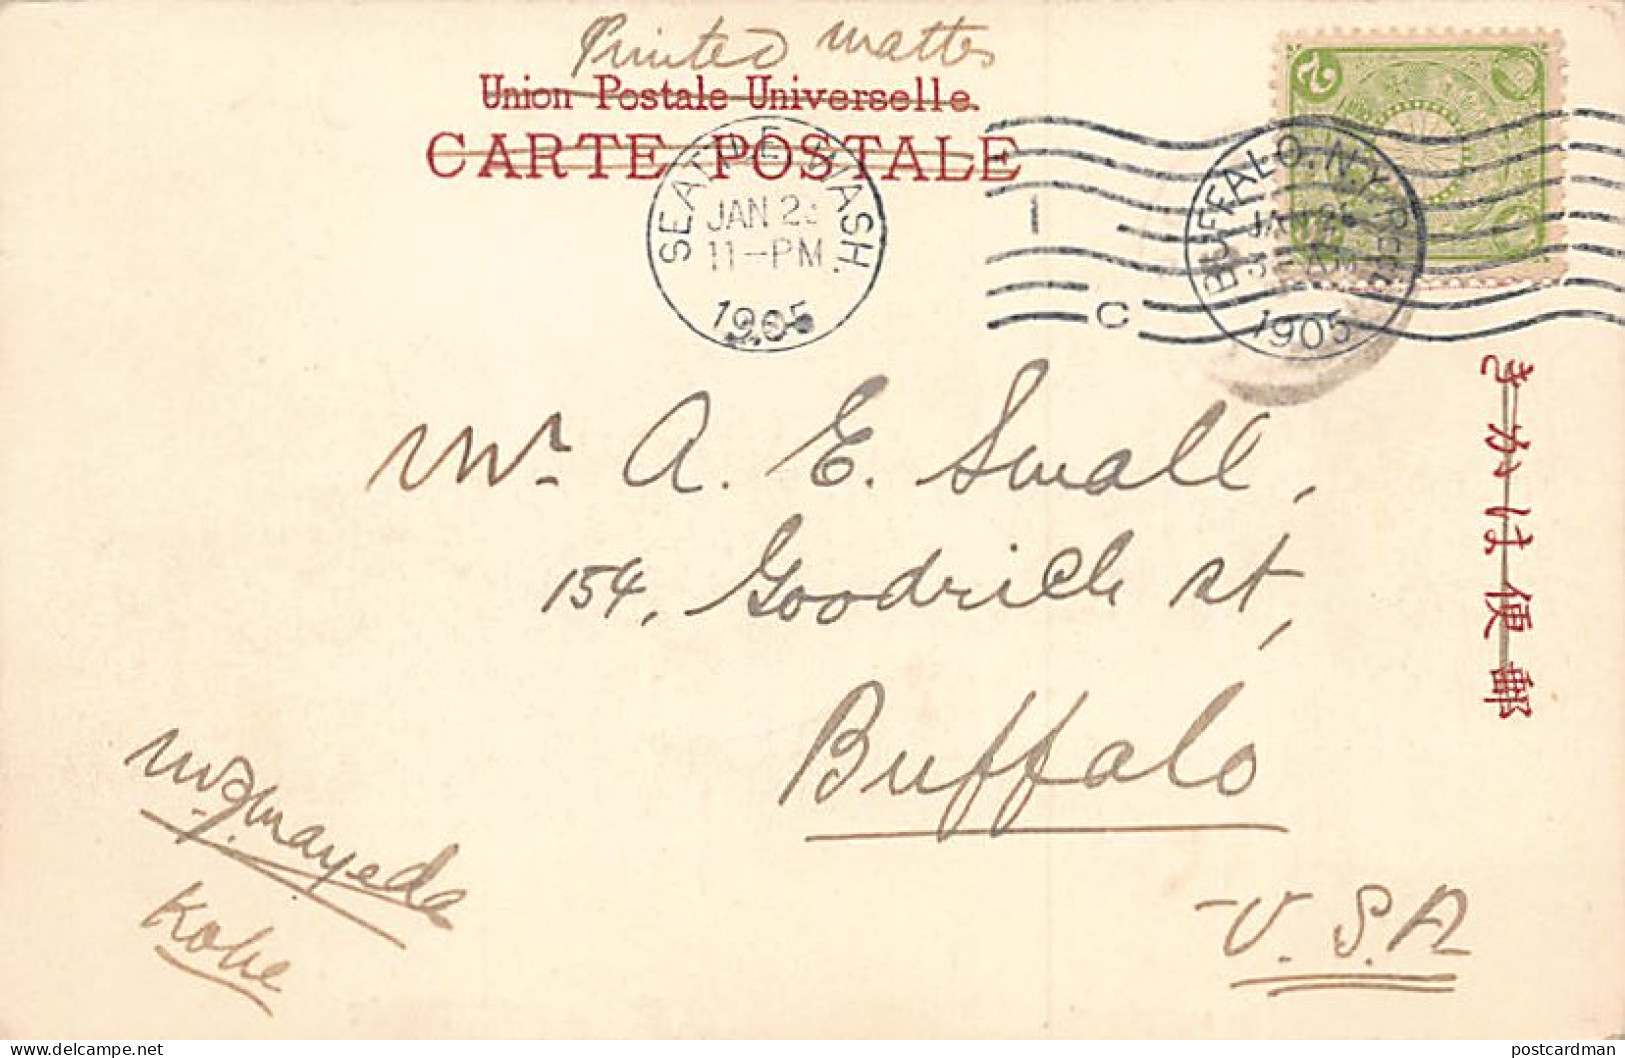 Printed matter
Union Postale Universelle.
CARTE POSTALE
SEATTLE, WASH.
JAN 23
11-PM
1905
1
C
BUFFALO, N.Y.
1905
Mr. A. E. Small,
154, Goodrich st,
Buffalo
U.S.A
Mayeda
Kobe
きかは便郵
postcardman
www.delcampe.net